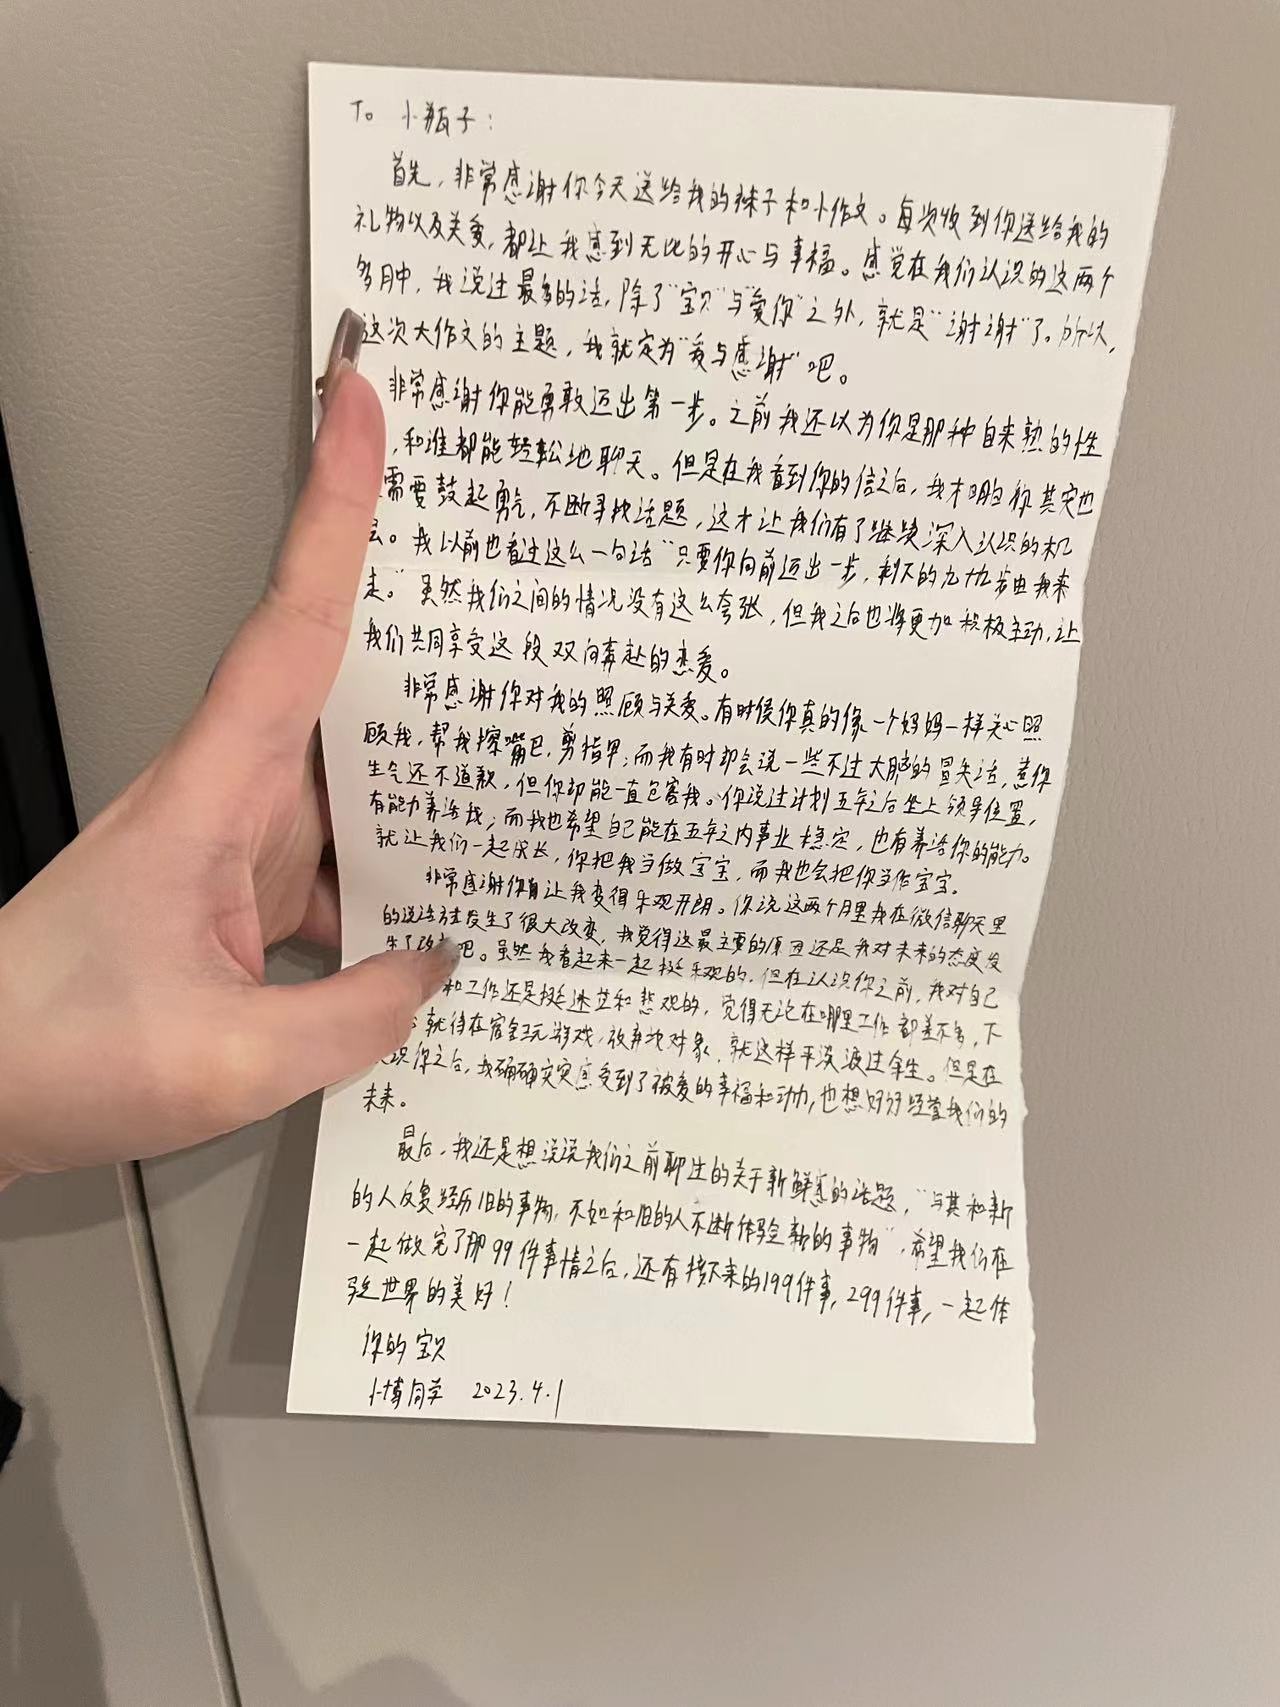 To 小瓶子：
首先，非常感谢你今天送给我的袜子和小作文。每次收到你送给我的
礼物以及关爱，都让我感到无比的开心与幸福。感觉在我们认识的这两个
多月中，我说过最多的话，除了"宝贝"与"爱你"之外，就是"谢谢"了。所以，
这次大作文的主题，我就定为"爱与感谢"吧。
非常感谢你能勇敢迈出第一步。之前我还以为你是那种自来熟的性
，和谁都能轻松地聊天。但是在我看到你的信之后，我才明白你其实也
需要鼓起勇气，不断寻找话题，这才让我们有了继续深入认识的机
会。我以前也看过这么一句话"只要你向前迈出一步，剩下的九十九步由我来
走。"虽然我们之间的情况没有这么夸张，但我之后也将更加积极主动，让
我们共同享受这段双向奔赴的恋爱。
非常感谢你对我的照顾与关爱。有时候你真的像一个妈妈一样关心照
顾我，帮我擦嘴巴，剪指甲；而我有时却会说一些不过大脑的冒失话，惹你
生气还不道歉，但你却能一直包容我。你说过计划五年之后坐上领导位置，
有能力养活我；而我也希望自己能在五年之内事业稳定，也有养活你的能力。
就让我们一起成长，你把我当做宝宝，而我也会把你当作宝宝。
非常感谢你让我变得乐观开朗。你说这两个月里我在微信聊天里
的说话方式发生了很大改变，我觉得这最主要的原因还是我对未来的态度发
生了改变吧。虽然我看起来一起挺乐观的，但在认识你之前，我对自己
和工作还是挺迷茫和悲观的，觉得无论在哪里工作都差不多，下
就待在宿舍玩游戏，放弃找对象，就这样平淡渡过余生。但是在
识你之后，我确确实实感受到了被爱的幸福和动力，也想好好经营我们的
未来。
最后，我还是想说说我们之前聊过的关于新鲜感的话题，"与其和新
的人反复经历旧的事物，不如和旧的人不断体验新的事物"，希望我们在
一起做完了那99件事情之后，还有接下来的199件事，299件事，一起体
验世界的美好！
你的宝贝
小博同学 2023.4.1